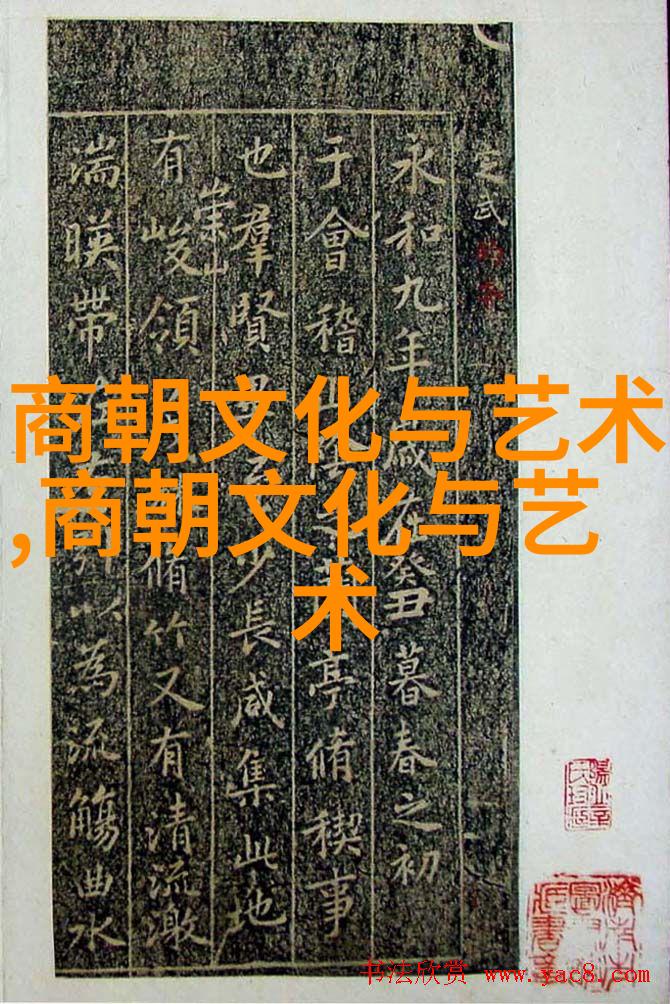 定武
永和九年歲在癸丑暮春之初
于會稽山陰之亭脩稧事
也羣賢畢至少長咸集此地
有崇山峻領脩竹又有清流激
湍暎帶以為流觴曲水
商朝文化与艺术
,商朝文化与艺
术
书法欣赏 www.yac8.com